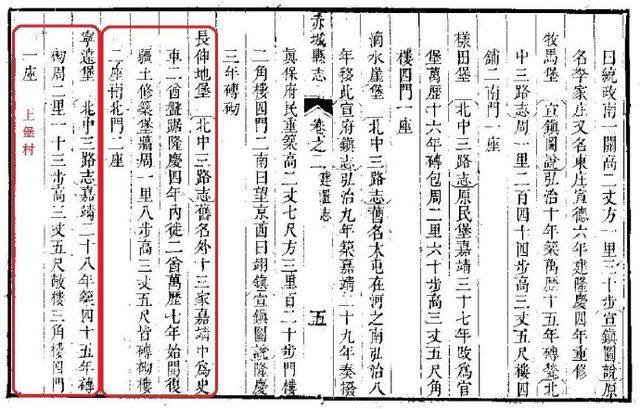 曰統政南一開高二丈方一里三十步宣鎮圖說原
名李家庄又名東庄宣德六年建隆慶四年重修
牧馬堡 宣鎮圖說弘治十年築萬歷十五年磚甃北
中三路志周一里二百四十四步高三丈五尺樓四
鋪二南門一座
樣田堡 北中三路志原民堡嘉靖三十七年改為官
堡萬歷十六年磚包周二里六十步高三丈五尺角
樓四門一座
滴水崖堡 北中三路志舊名木屯在河之南弘治八
年移此宣府鎮志弘治九年築嘉靖二十九年奏撥
赤城縣志 卷之二 建置志 五
真保府民重築高二丈七尺方三里百二十步門樓
二角樓四門二南曰望京西曰翊鎮宣鎮圖說隆慶
三年磚砌
長伸地堡 北中三路志舊名外十三家嘉靖中為史
車二酋盤踞隆慶四年內徙二酋萬歷七年始開復
疆土修築堡牆周一里八步高三丈五尺皆磚砌樓
二座南北門二座
寧遠堡 北中三路志嘉靖二十八年築四十五年磚
砌周二里一十三步高三丈五尺敵樓三角樓四門
一座 上堡村